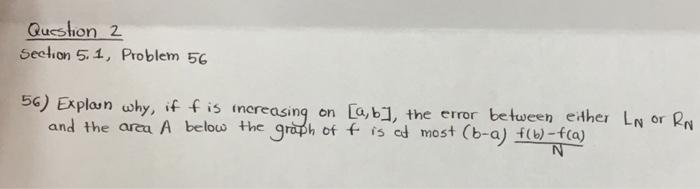 Question 2
Section 5.1, Problem 56
56) Explain why, if f is increasing on [a,b], the error between either LN or RN
and the area A below the graph of f is at most (b-a) f(b)-f(a)
N